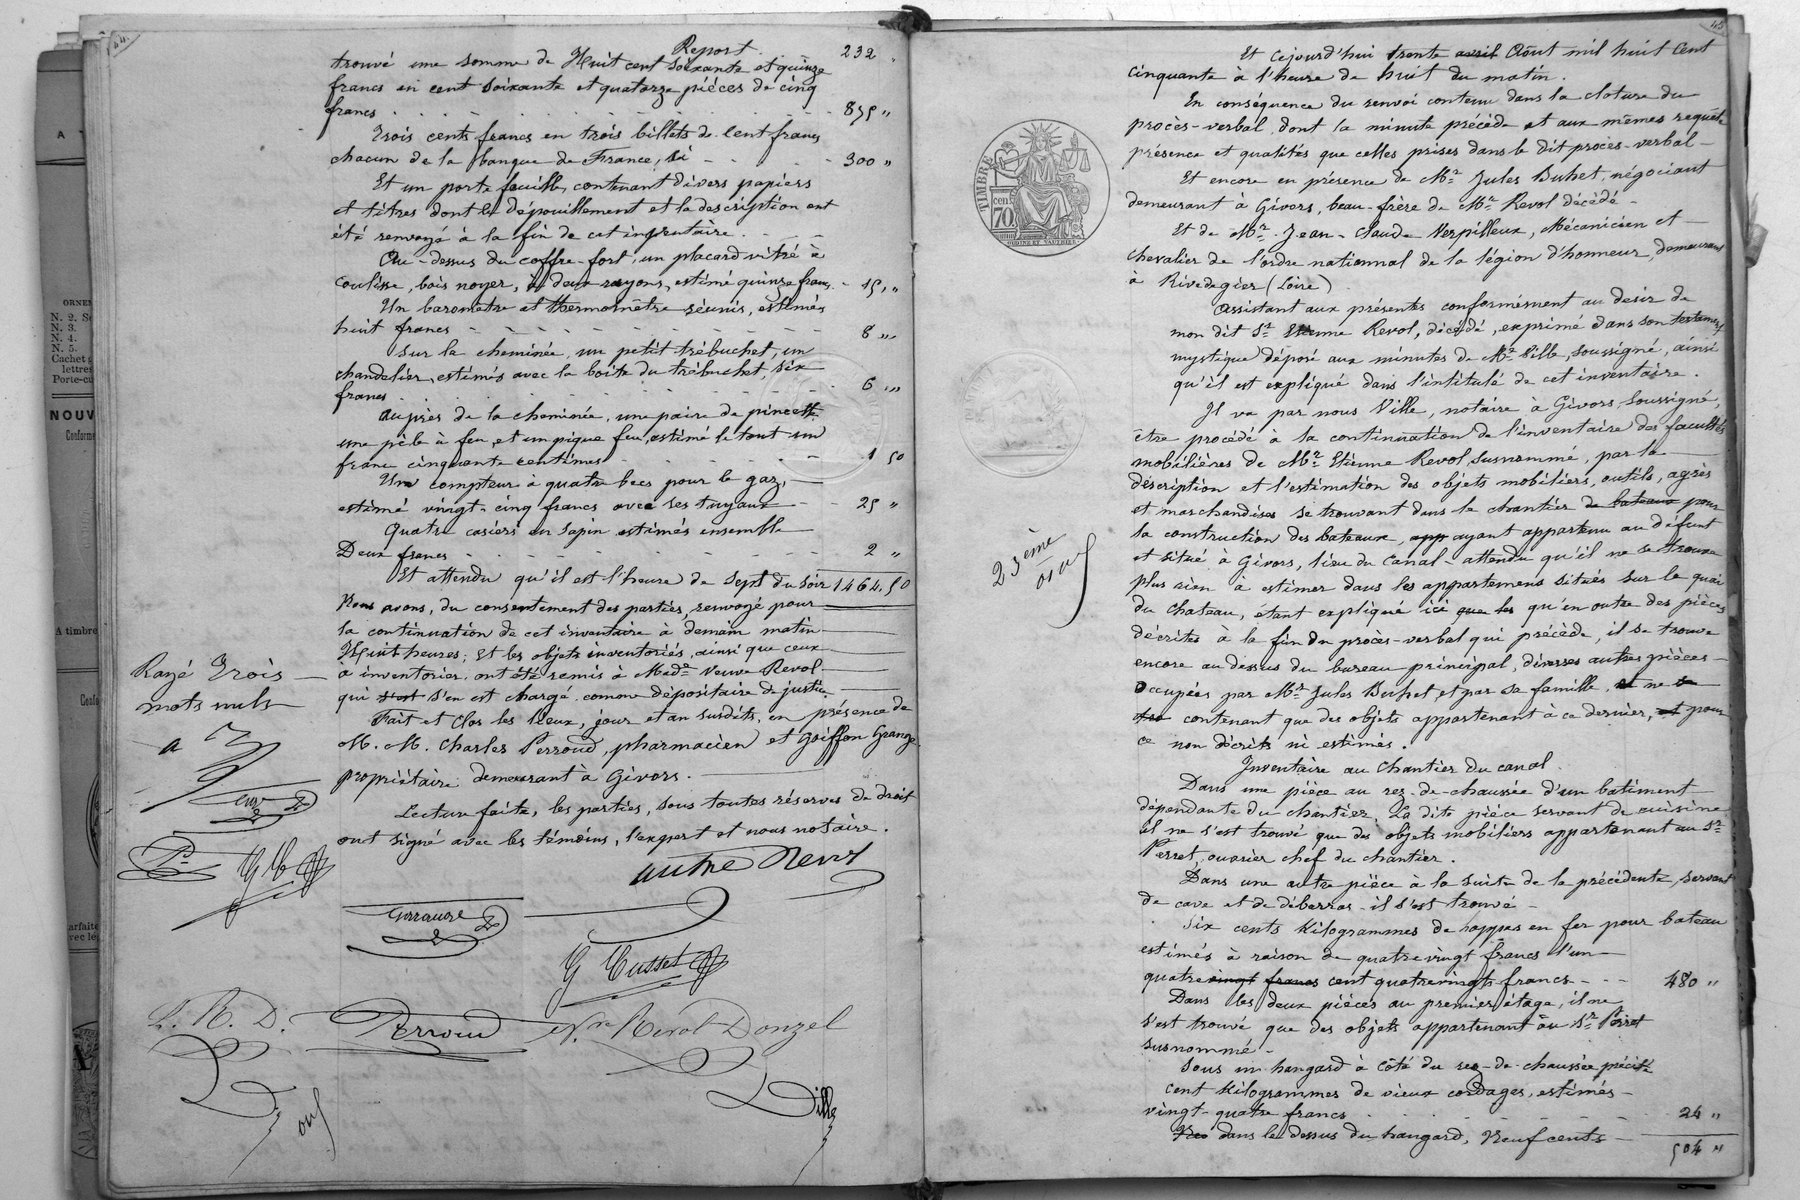 44.
Report. 232 "
trouvé une somme de Huit cent soixante et quinze
francs en cent soixante et quatorze pièces de cinq
francs . . . . . . . 875 "
Trois cents francs en trois billets de Cent francs
chacun de la banque de France, si - - - 300 "
Et un porte feuille, contenant divers papiers
et titres dont le dépouillement et la description ont
été renvoyé à la fin de cet inventaire.
Au-dessus du coffre-fort, un placard vitré à
coulisse, bois noyer, à deux rayons, estimé quinze francs - 15, "
Un baromètre et thermomètre réunis, estimés
huit francs - - - - - - - 8 "
Sur la cheminée, un petit trébuchet, un
chandelier, estimés avec la boite du trébuchet, six
francs . . . . . . . 6 "
Auprès de la cheminée, une paire de pincette
une pèle à feu, et un pique feu, estimé le tout un
franc cinquante centimes - - - - 1 50
Un compteur à quatre becs pour le gaz,
estimé vingt-cinq francs avec ses tuyaux - - 25 "
Quatre casiers en sapin estimés ensemble
Deux francs - - - - - - - 2 "
Et attendu qu'il est l'heure de Sept du soir 1464.50
Nous avons, du consentement des parties, renvoyé pour
la continuation de cet inventaire à demain matin
Huit heures; Et les objets inventoriés, ainsi que ceux
à inventorier, ont été remis à Made Veuve Revol
qui s'est s'en est chargé comme dépositaire de justice
Fait et Clos les lieux, jour et an susdits, en présence de
M. M. Charles Perroud, pharmacien et Goiffon Grange
propriétaire demeurant à Givors.
Lecture faite, les parties, sous toutes réserves de droit
ont signé avec les témoins, l'expert et nous notaire.
Rayé Trois
mots nuls
G Cusset
L. R. D.
Perroud
Vve Revol Donzel
Ville
45
Et Cejourd'hui trente avril Août mil huit Cent
cinquante à l'heure de huit du matin.
En conséquence du renvoi contenu dans la cloture du
procès-verbal dont la minute précède et aux mêmes requête
présence et qualités que celles prises dans le dit procès-verbal -
Et encore en présence de Mr Jules Buhet, négociant
demeurant à Givors, beau-frère de Mr Revol décédé -
Et de Mr Jean-Claude Verpilleux, Mécanicien et
Chevalier de l'ordre nationnal de la légion d'honneur, demeurant
à Rivedegier (Loire)
Assistant aux présentes conformément au desir de
mon dit Sr Etienne Revol, décédé, exprimé dans son testament
mystique déposé aux minutes de Me Ville, soussigné, ainsi
qu'il est expliqué dans l'intitulé de cet inventaire.
Il va par nous Ville, notaire à Givors, soussigné,
être procédé à la continuation de l'inventaire des facultés
mobilières de Mr Etienne Revol, susnommé, par la
déscription et l'estimation des objets mobiliers, outils, agrès
et marchandises se trouvant dans le chantier de bateaux pour
la construction des bateaux, app ayant appartenu au défunt
et situé à Givors, lieu du Canal - attendu qu'il ne se trouve
plus rien à estimer dans les appartemens situés sur le quai
du Chateau, étant expliqué ici que les qu'en outre des pièces
décrites à la fin du procès-verbal qui précède, il se trouve
encore au dessus du bureau principal, diverses autres pièces -
occupées par Mr Jules Buhet, et par sa famille, et ne se
contenant que des objets appartenant à ce dernier, et pour
ce non décrits ni estimés.
23ème
Inventaire au Chantier du canal
Dans une pièce au rez-de-chaussée d'un batiment
dépendante du chantier, La dite pièce servant de cuisine
il ne s'est trouvé que des objets mobiliers appartenant au Sr
Perret, ouvrier chef du chantier.
Dans une autre pièce à la suite de la précédente, servant
de cave et de débarras - il s'est trouvé -
Six cents Kilogrammes de happes en fer pour bateau
estimés à raison de quatrevingt francs l'un
quatre vingt francs cent quatrevingts francs - - - 480 "
Dans les deux pièces au premier étage, il ne
s'est trouvé que des objets appartenant au Sr Perret
susnommé -
Sous un hangard à côté du rez-de-chaussée précité
cent Kilogrammes de vieux cordages, estimés -
vingt-quatre francs . . . . . . 24 "
dans le dessus du hangard, Neuf cents -
504 "
TIMBRE
cent
70
A
ORNEM
N. 2. S
N. 3.
N. 4.
N. 5.
Cachet
lettres
Porte-cu
NOUV
Conforme
A timbre
Confo
arfaite
vec lé